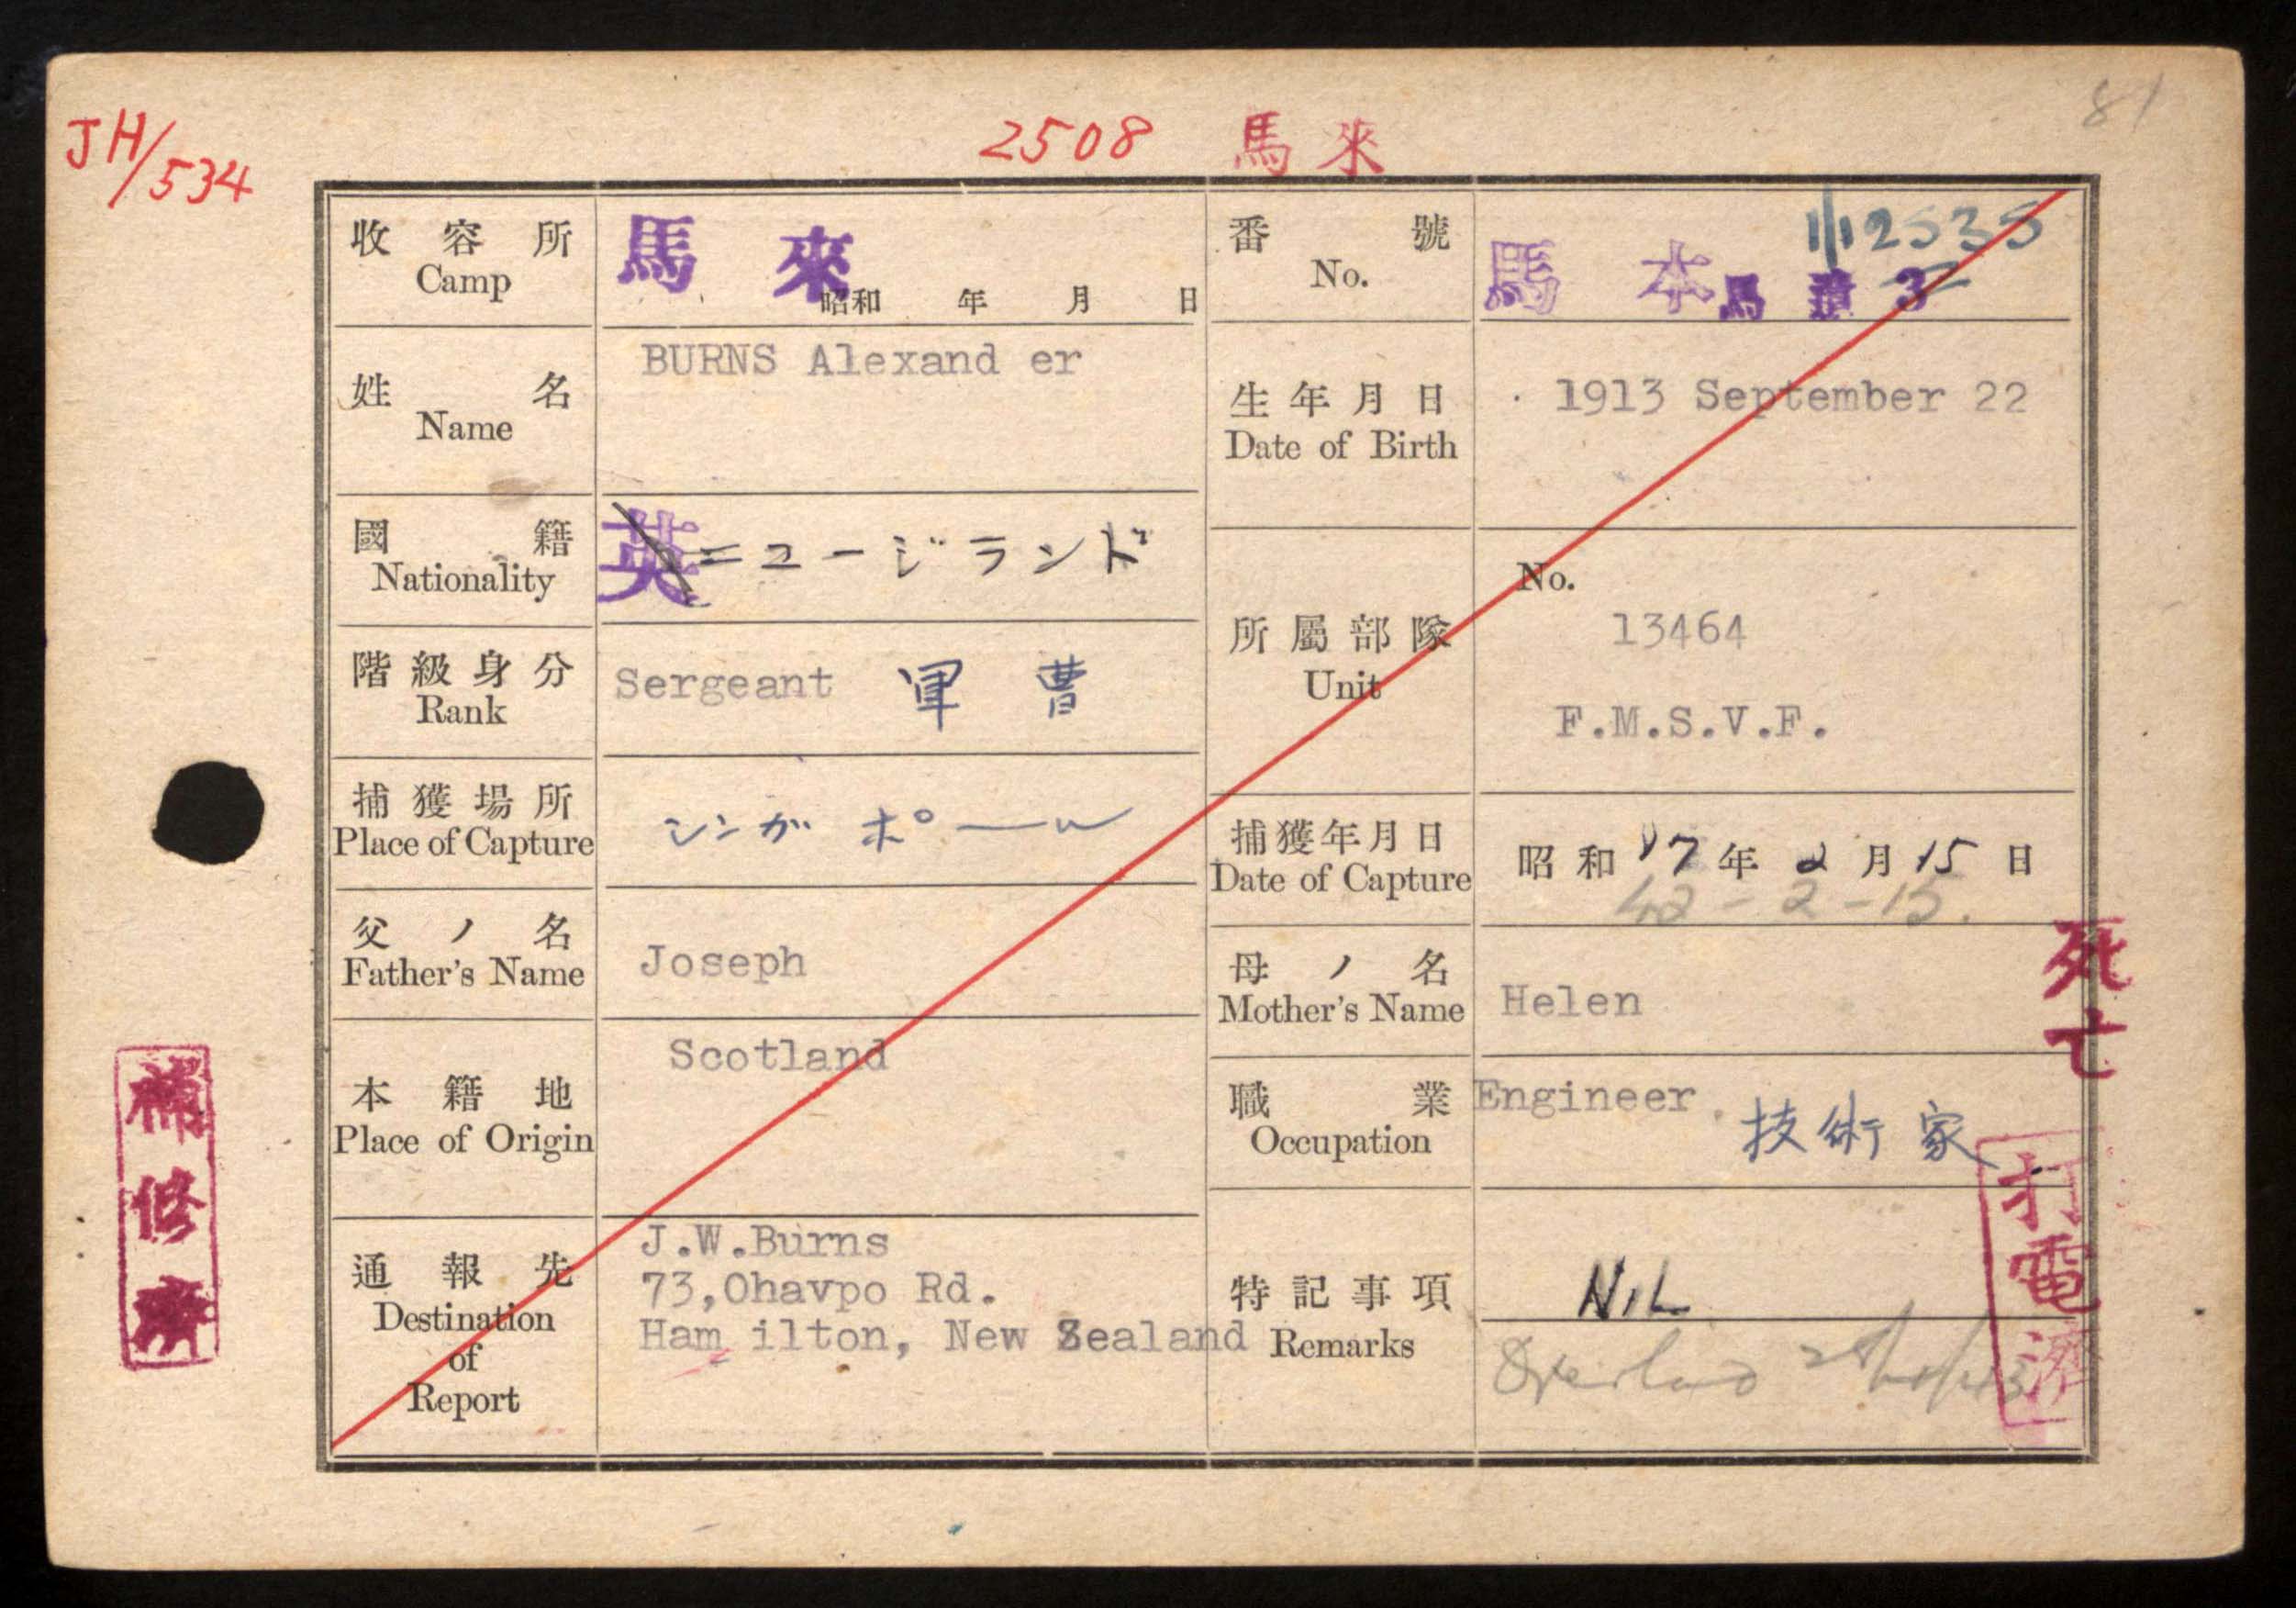 81
JH/534
2508 馬来
收容所
Camp
馬來
昭和 年 月 日
番號
No.
1/12535
馬本馬 3
姓名
Name
BURNS Alexand er
生年月日
Date of Birth
1913 September 22
國籍
Nationality
英 ニュージランド
階級身分
Rank
Sergeant 軍曹
所屬部隊
Unit
No.
13464
F.M.S.V.F.
捕獲場所
Place of Capture
シンガポール
捕獲年月日
Date of Capture
昭和17年2月15日
42-2-15.
父ノ名
Father's Name
Joseph
母ノ名
Mother's Name
Helen
死亡
本籍地
Place of Origin
Scotland
職業
Occupation
Engineer.
技術家
通報先
Destination
of
Report
J.W.Burns
73,Ohavpo Rd.
Ham ilton, New Zealand
特記事項
Remarks
NiL
打電濟
補修濟